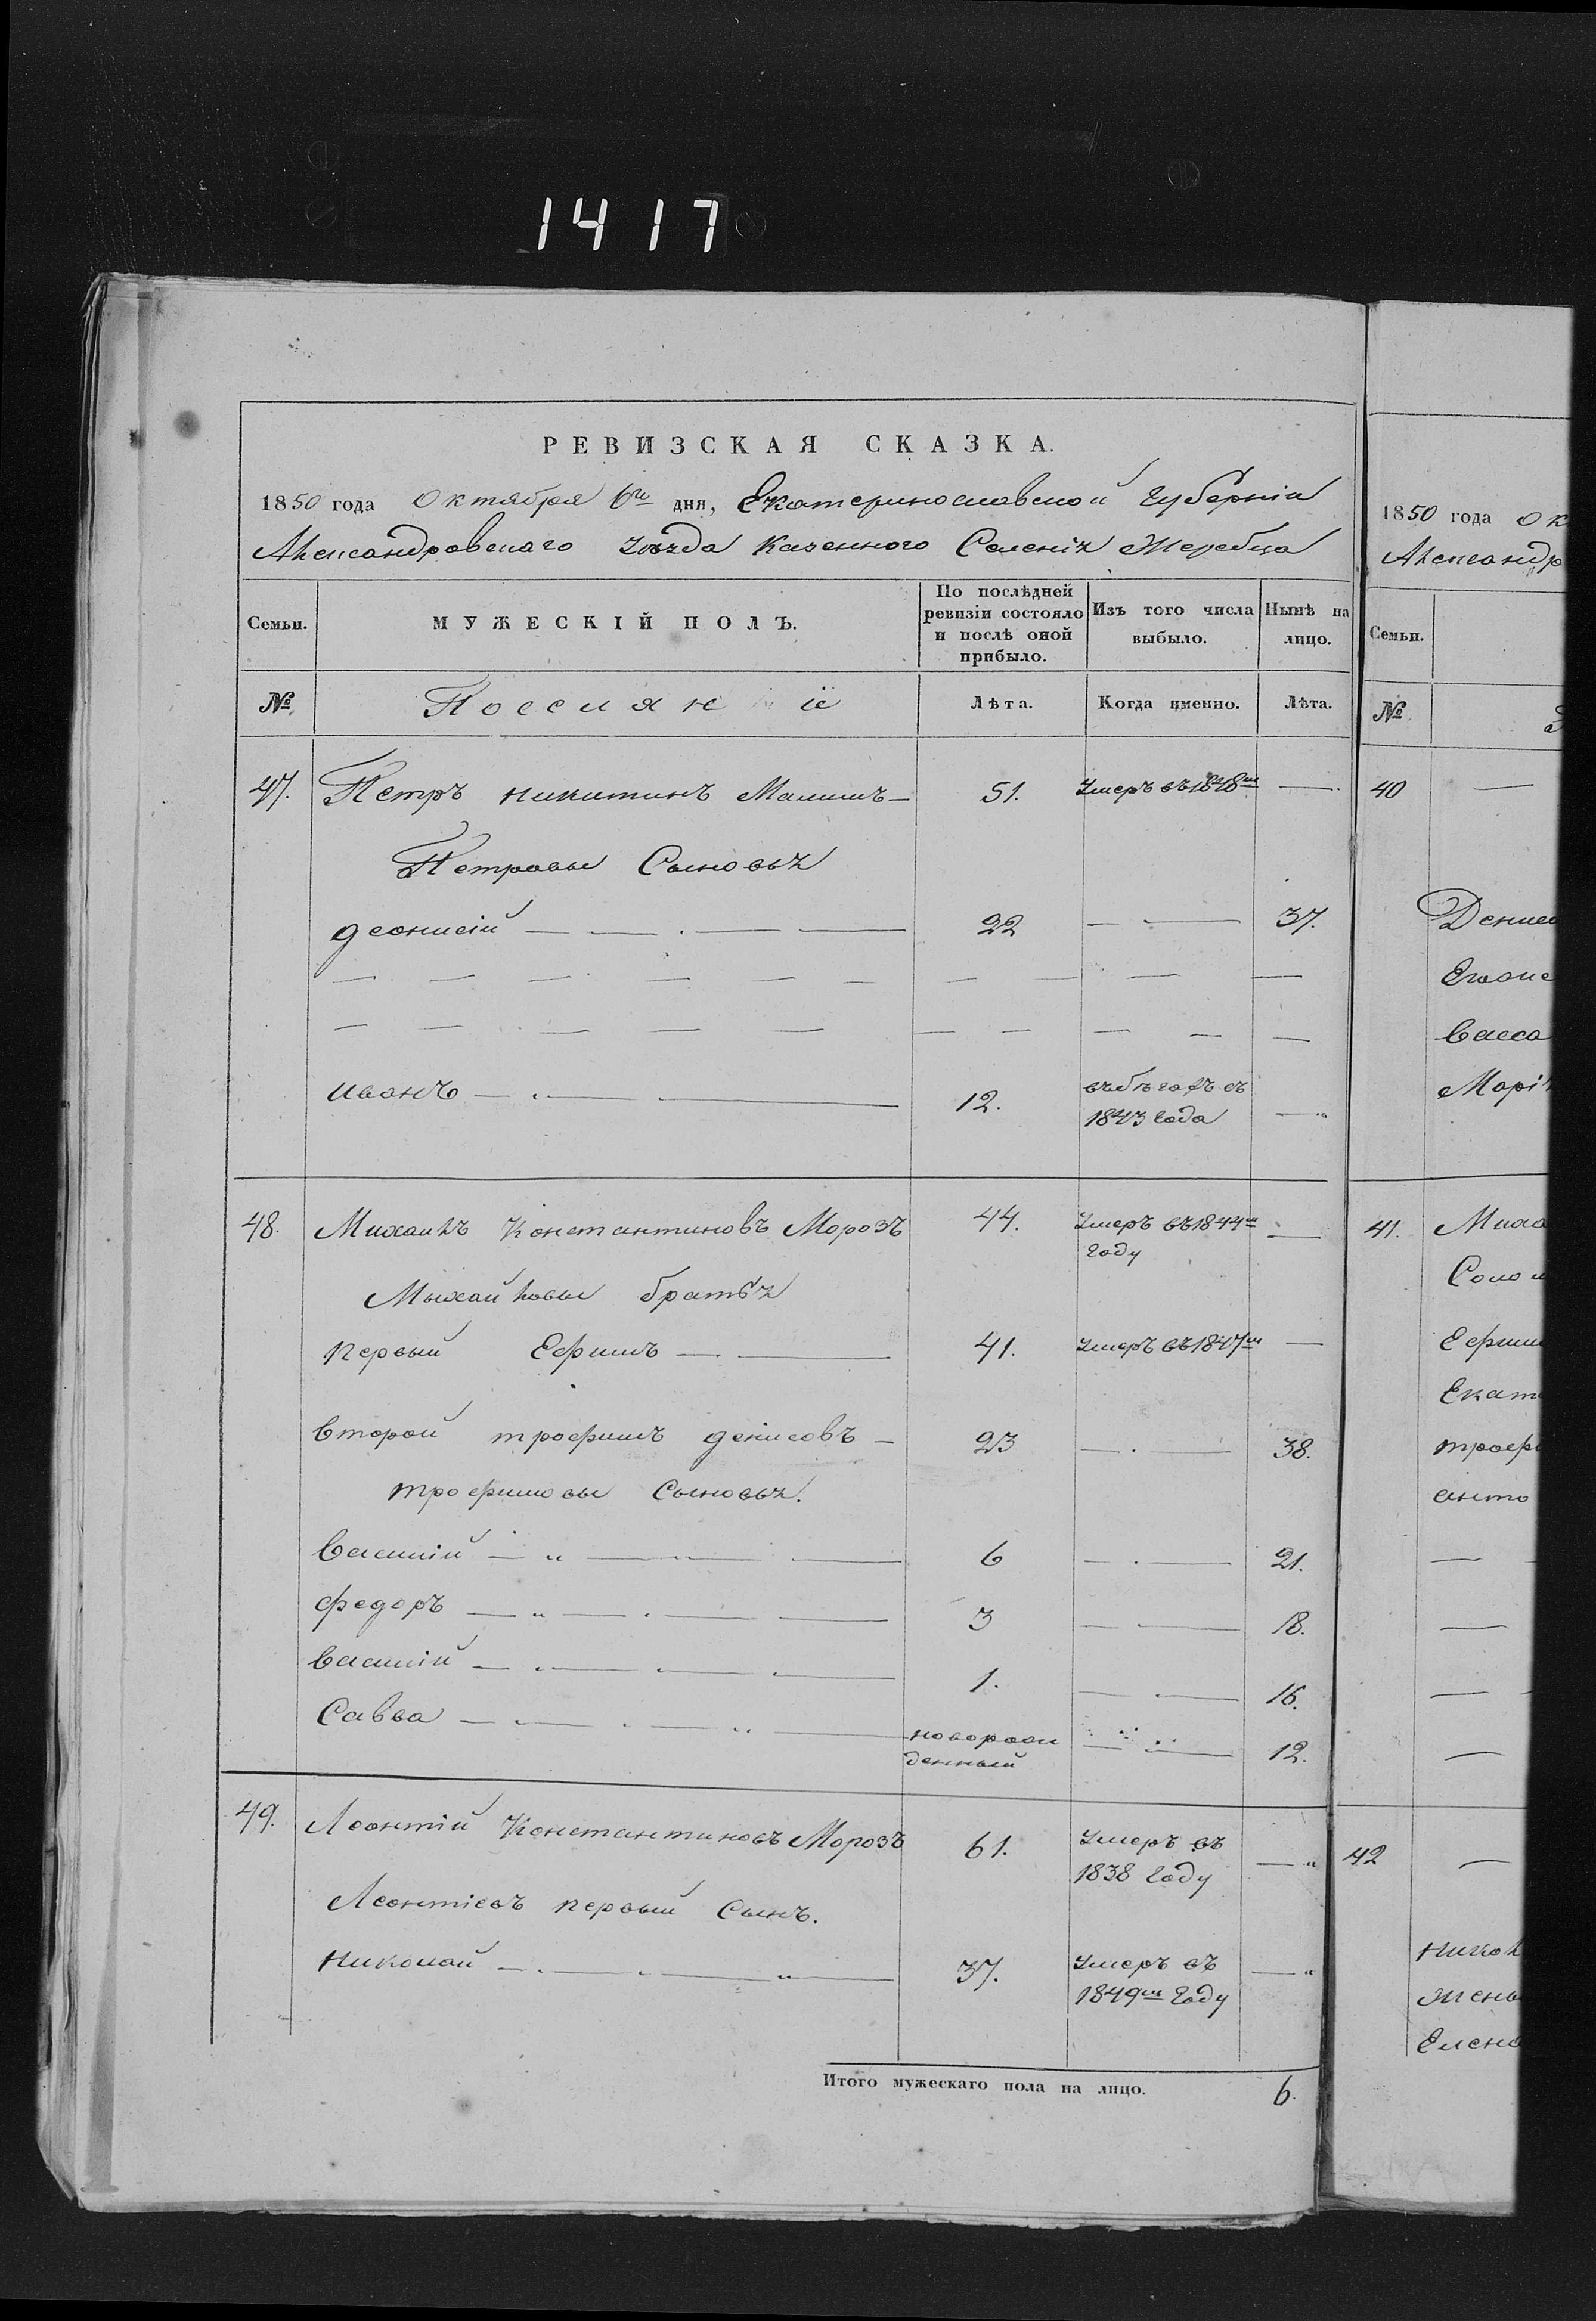 1417
РЕВИЗСКАЯ СКАЗКА.
1850 года Октября 6го дня, Екатеринославской Губерніи
Александровскаго Уѣзда Казенного Селенія Жеребца
Семьи. МУЖЕСКІЙ ПОЛЪ. По послѣдней ревизіи состояло и послѣ оной прибыло. Изъ того числа выбыло. Нынѣ на лицо.
№ Поселяне Лѣта. Когда именно. Лѣта.
47. Петръ никитинъ Малишъ — 51. Умеръ въ —
Петровы Сыновья
деонисій — 22 — 37.
иванъ — 12. въ бѣгахъ съ
1843 года —
48. Михаилъ Константиновъ Морозъ 44. Умеръ въ 1844м —
Году
Мыхайловы братья
первый Ефимъ — 41. Умеръ въ 1847м —
второй трофимъ денисовъ — 23 — 38.
трофимовы Сыновья.
василій — 6 — 21.
федоръ — 3 — 18.
василій — 1. — 16.
Савва — новорож — 12.
денный
49. Леонтій Константиновъ Морозъ 61. Умеръ въ —
1838 Году
Леонтіевъ первый Сынъ.
николай — 37. Умеръ въ —
1849м Году
Итого мужескаго пола на лицо. 6.
1850 года Ок
Александр
Семьи.
№
40 —
Денис
Васса
Марія
41. Миха
Солом
Ефим
Екат
троф
анто
42 —
никол
жена
Елена